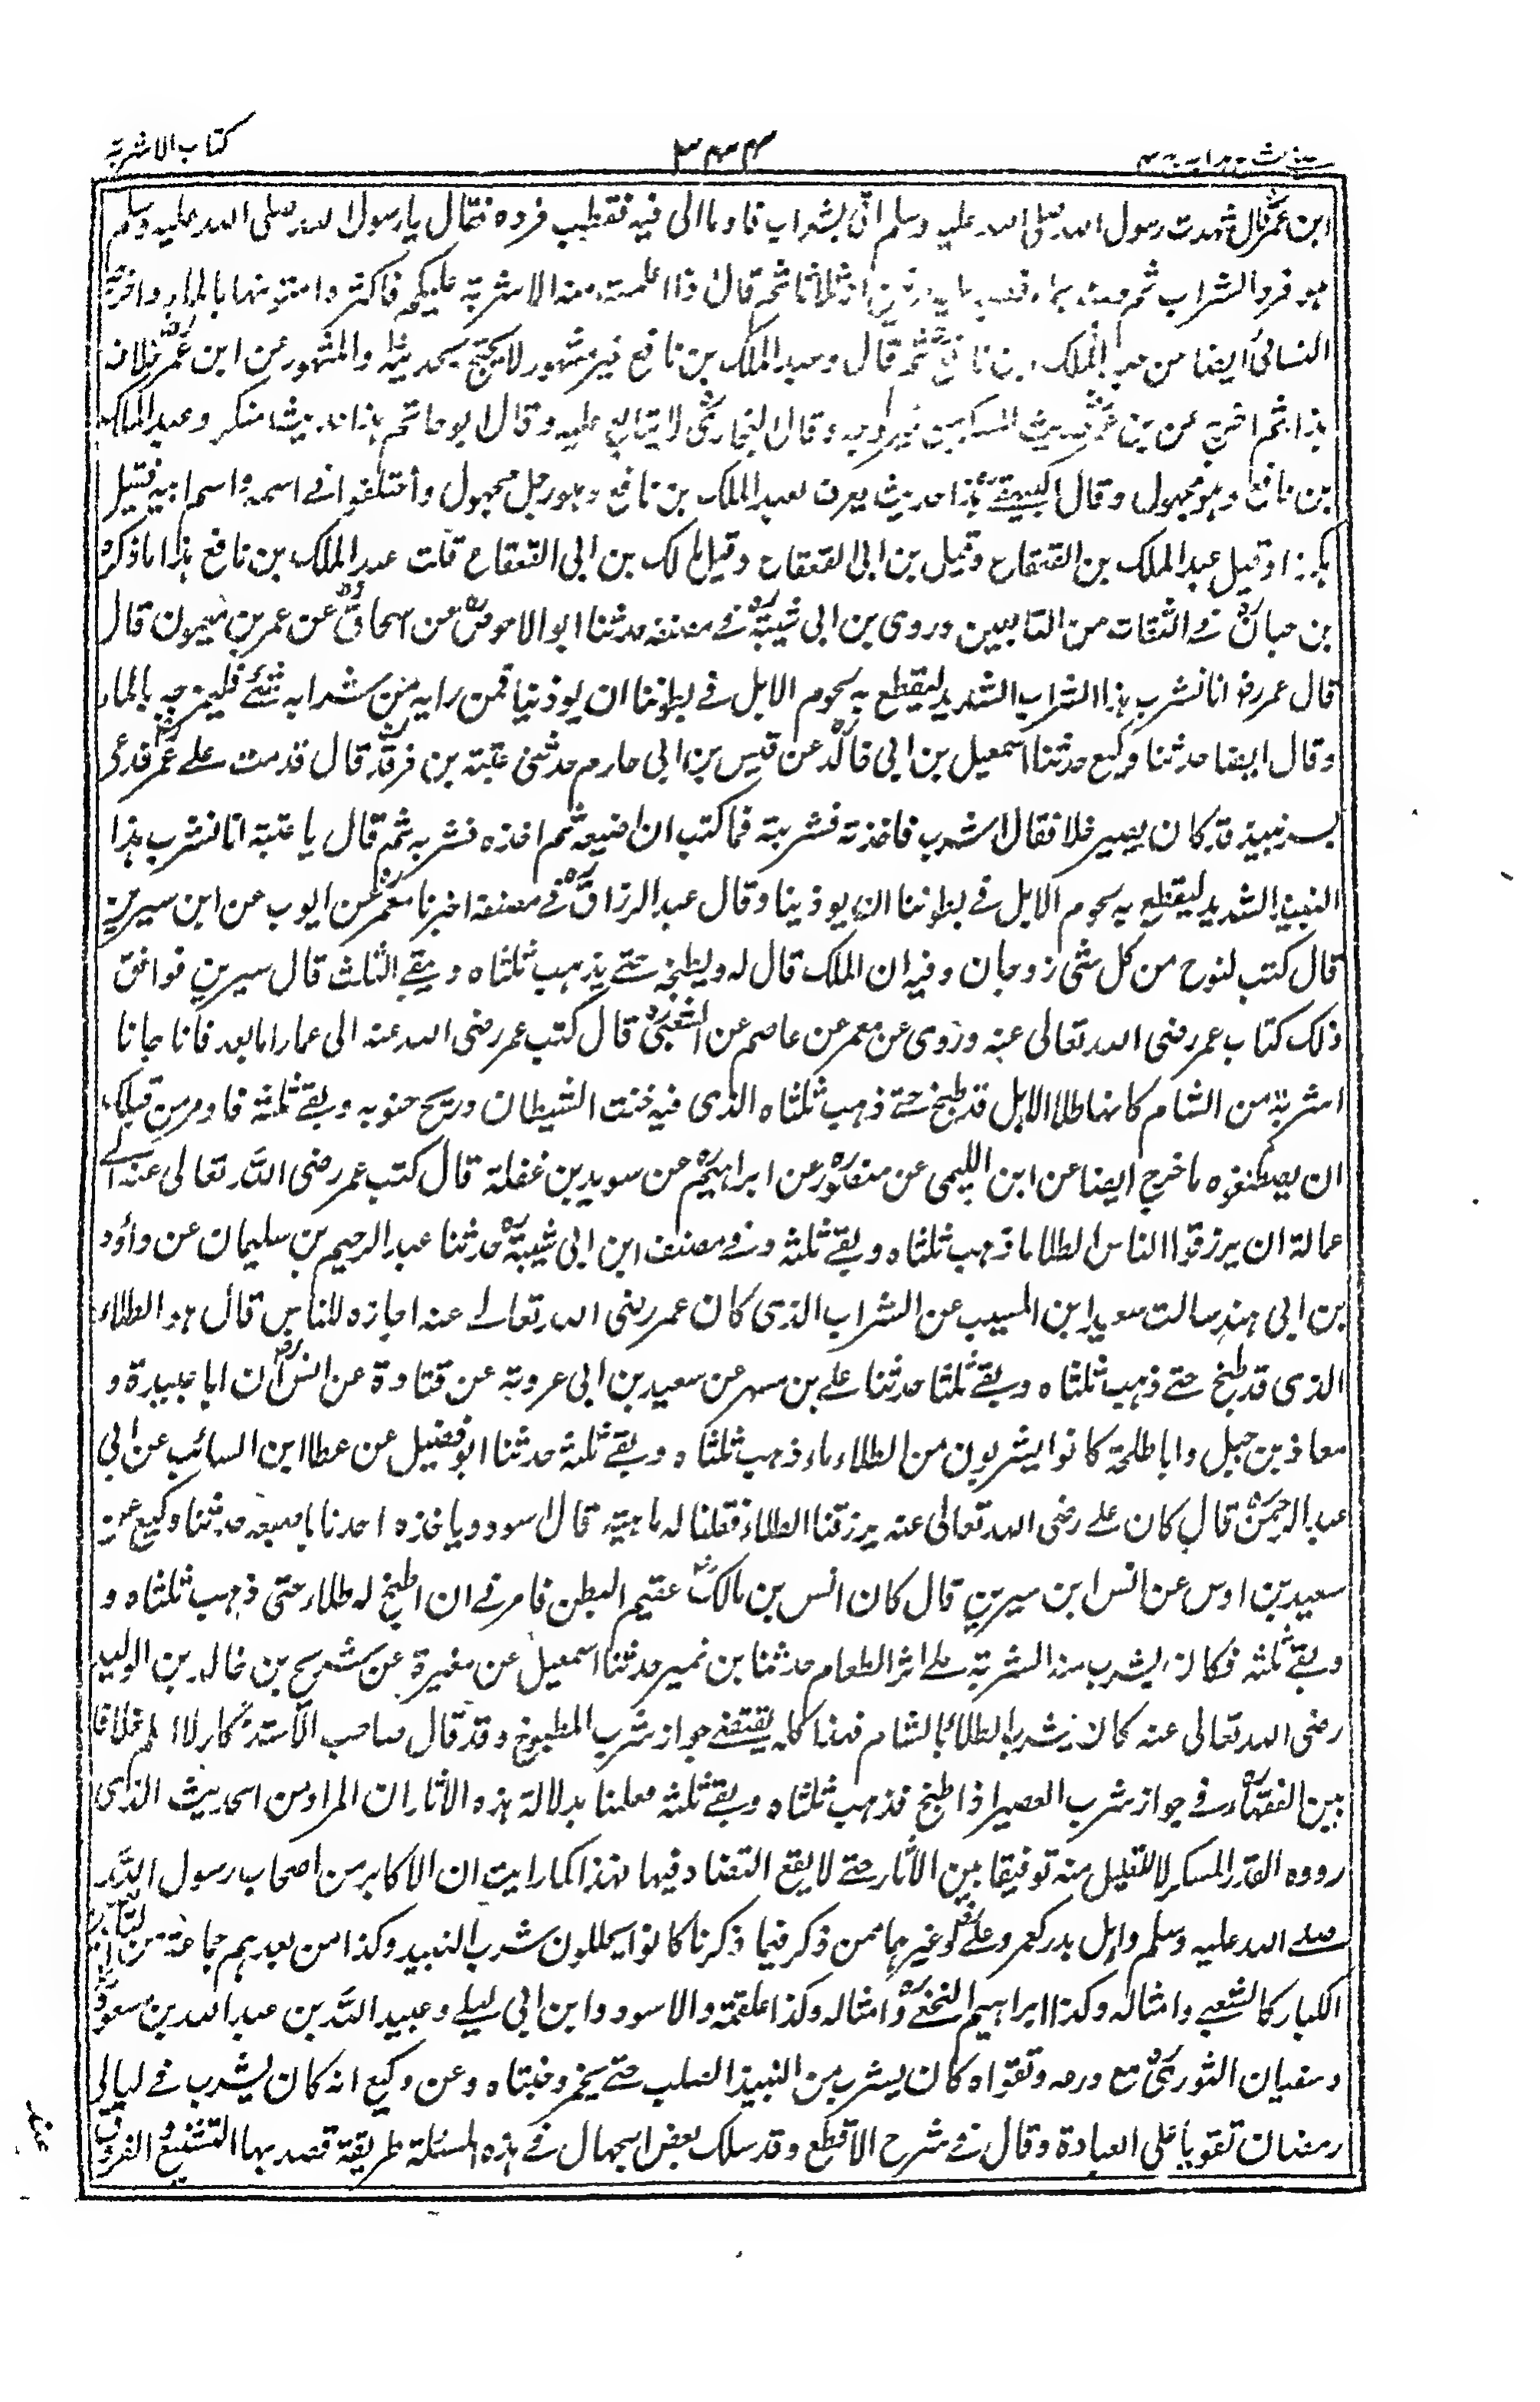 كتاب الاشربة
ابن عمر قال شهدت رسول الله صلى الله عليه وسلم اتى بشراب فادناه الى فيه فقطب فرده فقال يا رسول الله صلى الله عليه وسلم
هو فرد الشراب ثم بماء فصبه ثلاثا ثم قال اذا اغلمت هذه الاشربة عليكم فاكثروا متونها بالماء واخرجه
النسائى ايضا عن عبد الملك بن نافع ثم قال وعبد الملك بن نافع غير مشهور لا يحتج بحديثه والمشهور عن ابن عمر خلاف
هذا ثم اخرج عن بن عمر حديث المسكر من غير وجه وقال البخارى لا يتابع عليه وقال ابو حاتم هذا حديث منكر وعبد الملك
بن نافع وهو مجهول وقال البيهقے هذا حديث يعرف بعبد الملك بن نافع وهو رجل مجهول واختلفوا فے اسمه واسم ابيه فقيل
هكذا وقيل عبد الملك بن القعقاع وقيل بن ابى القعقاع وقيل مالك بن ابى القعقاع قلت عبد الملك بن نافع هذا ما ذكره
بن حبان فے الثقات من التابعين وروى بن ابى شيبة فے مصنفه حدثنا ابو الاحوص عن اسحاق عن عمر بن ميمون قال
قال عمر رض انا نشرب هذا الشراب الشديد ليقطع به لحوم الابل فے بطوننا ان يوذنيا فمن رابه من شرابه شئے فليمزجه بالماء
وقال ايضا حدثنا وكيع حدثنا اسمعيل بن ابى خالد عن قيس بن ابى حازم حدثنى عتبة بن فرقد قال قدمت علے عمر فدعى
بسر نبيذ قد كان يصير خلا فقال اشرب فاخذته فشربته فما كتب ان اضيعه ثم اخذه فشربه ثم قال يا عتبة انا نشرب هذا
النبيذ الشديد ليقطع به لحوم الابل فے بطوننا ان يوذينا وقال عبد الرزاق فے مصنفه اخبرنا معمر عن ايوب عن ابن سيرين
قال كتب لنوح من كل شى زوجان وفيه ان الملك قال له ويطبخه حتے يذهب ثلثاه ويبقے الثلث قال سيرين فوافق
ذلك كتاب عمر رضى الله تعالى عنه وروى عن معمر عن عاصم عن الشعبى قال كتب عمر رضى الله عنه الى عمار اما بعد فانا جانا
اشربة من الشام كانها طلاء الابل قد طبخ حتے ذهب ثلثاه الذى فيه خنث الشيطان وريح جنوبه وبقے ثلثه فاومر من قبلك
ان يصطنعوه ما خرج ايضا عن ابن التيمى عن منصور عن ابراهيم عن سويد بن غفلة قال كتب عمر رضى الله تعالى عنه الے
عمالة ان يرزقوا الناس الطلا ما ذهب ثلثاه وبقے ثلثه وفے مصنف ابن ابى شيبة حدثنا عبد الرحيم بن سليمان عن داؤد
بن ابى هند سالت سعيد ابن المسيب عن الشراب الذى كان عمر رضى الله تعالے عنه اجازه للناس قال هو الطلاء
الذى قد طبخ حتے ذهب ثلثاه وبقے ثلثا حدثنا علے بن مسهر عن سعيد بن ابى عروبة عن قتادة عن انس ان ابا عبيدة و
معاذ بن جبل وابا طلحة كانوا يشربون من الطلاء ماء ذهب ثلثاه وبقے ثلثه حدثنا ابو فضيل عن عطا ابن السائب عن ابى
عبد الرحمن قال كان علے رضى الله تعالى عنه يرزقنا الطلاء فقلنا له ما هيته قال اسود وياخذه احدنا باصبعه حدثنا وكيع عن
سعيد بن اوس عن انس ابن سيرين قال كان انس بن مالك عقيم البطن فامرنے ان اطبخ له طلاء حتى ذهب ثلثاه و
وبقے ثلثه فكان يشرب منه الشربة علے اثر الطعام حدثنا بن نمير حدثنا اسمعيل عن مغيرة عن شريح بن خالد بن الوليد
رضى الله تعالى عنه كان يشرب الطلاء بالشام فهذا كله يقتضے جواز شرب المطبوخ وقد قال صاحب الاستذكار لا اعلم خلافا
بين الفقهاء فے جواز شرب العصير اذا طبخ فذهب ثلثاه وبقے ثلثه فعلمنا بدلالة هذه الاثار ان المراد من الحديث الذى
رووه القدر المسكر لا القليل منه توفيقا بين الاثار حتے لا يقع التضاد فيها فهذا كما رايت ان الاكابر من اصحاب رسول الله
صلے الله عليه وسلم واهل بدر كعمر وعلے وغيرهما ممن ذكر فيما ذكرنا كانوا يحللون شرب النبيد وكذا من بعدهم جماعة من التابعين
الكبار كالشعبے وامثاله وكذا ابراهيم النخعے وامثاله وكذا علقمة والاسود وابن ابى ليلے وعبيد الله بن عبد الله بن مسعود
وسفيان الثورى مع ورعه وتقواه كان يشرب من النبيذ الصلب حتے يخمر وجنتاه وعن وكيع انه كان يشرب فے ليالى
رمضان تقويا على العبادة وقال فے شرح الاقطع وقد سلك بعض الجهال فے هذه المسئلة طريقة قصد بها التشنيع والفرق
عند